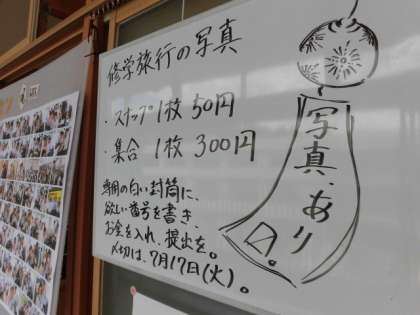 修学旅行の写真
・スナップ1枚50円
・集合 1枚300円
専用の白い封筒に、
欲しい番号を書き、
お金を入れ、提出を。
〆切は、7月17日(火)。
写真、あり〼。